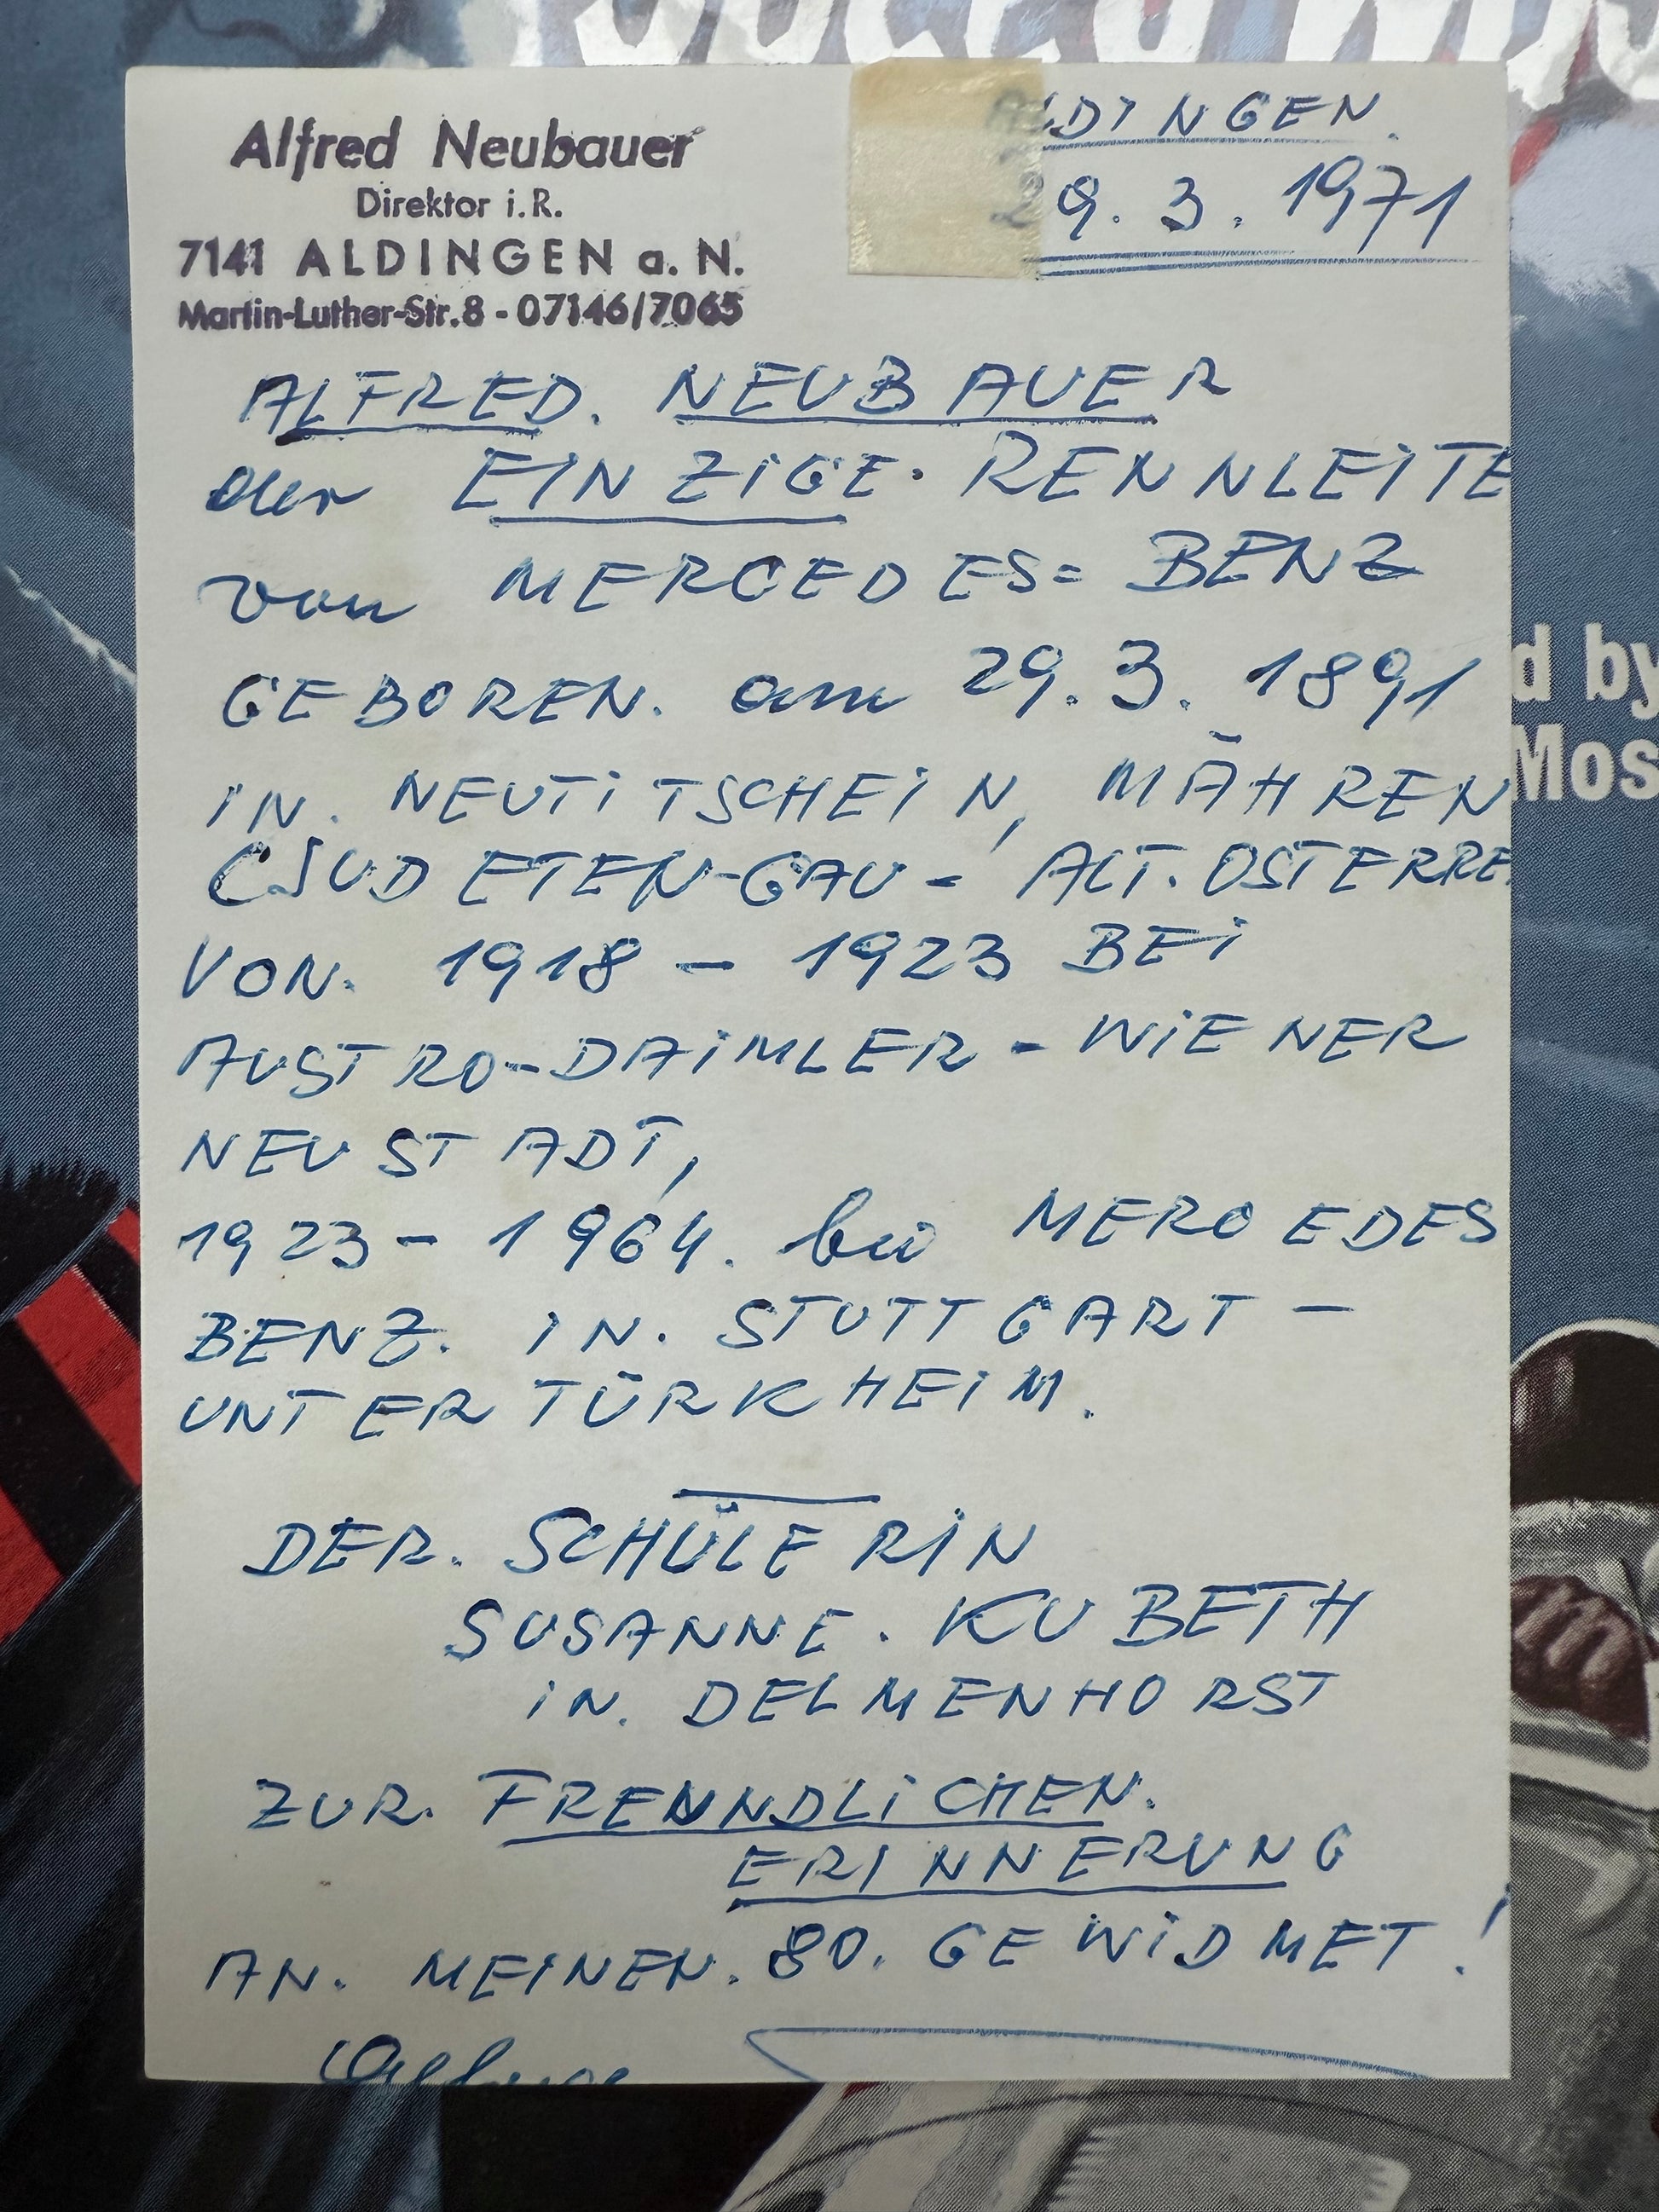 Alfred Neubauer
Direktor i.R.
7141 ALDINGEN a. N.
Martin-Luther-Str.8 - 07146/7065
DINGEN.
9. 3. 1971
ALFRED. NEUBAUER
der EINZIGE. RENNLEITE
von MERCEDES= BENZ
GEBOREN. am 29. 3. 1891
IN. NEUTITSCHEIN, MÄHREN
(SUDETEN-GAU - ALT. OSTERRE
VON. 1918 - 1923 BEI
AUSTRO-DAIMLER - WIENER
NEUSTADT,
1923 - 1964. bei MERCEDES
BENZ. IN. STUTTGART -
UNTERTÜRKHEIM.
DER. SCHÜLERIN
SUSANNE. KUBETH
IN. DELMENHORST
ZUR. FRENNDLICHEN.
ERINNERUNG
AN. MEINEN. 80. GEWIDMET!
d by
Mos